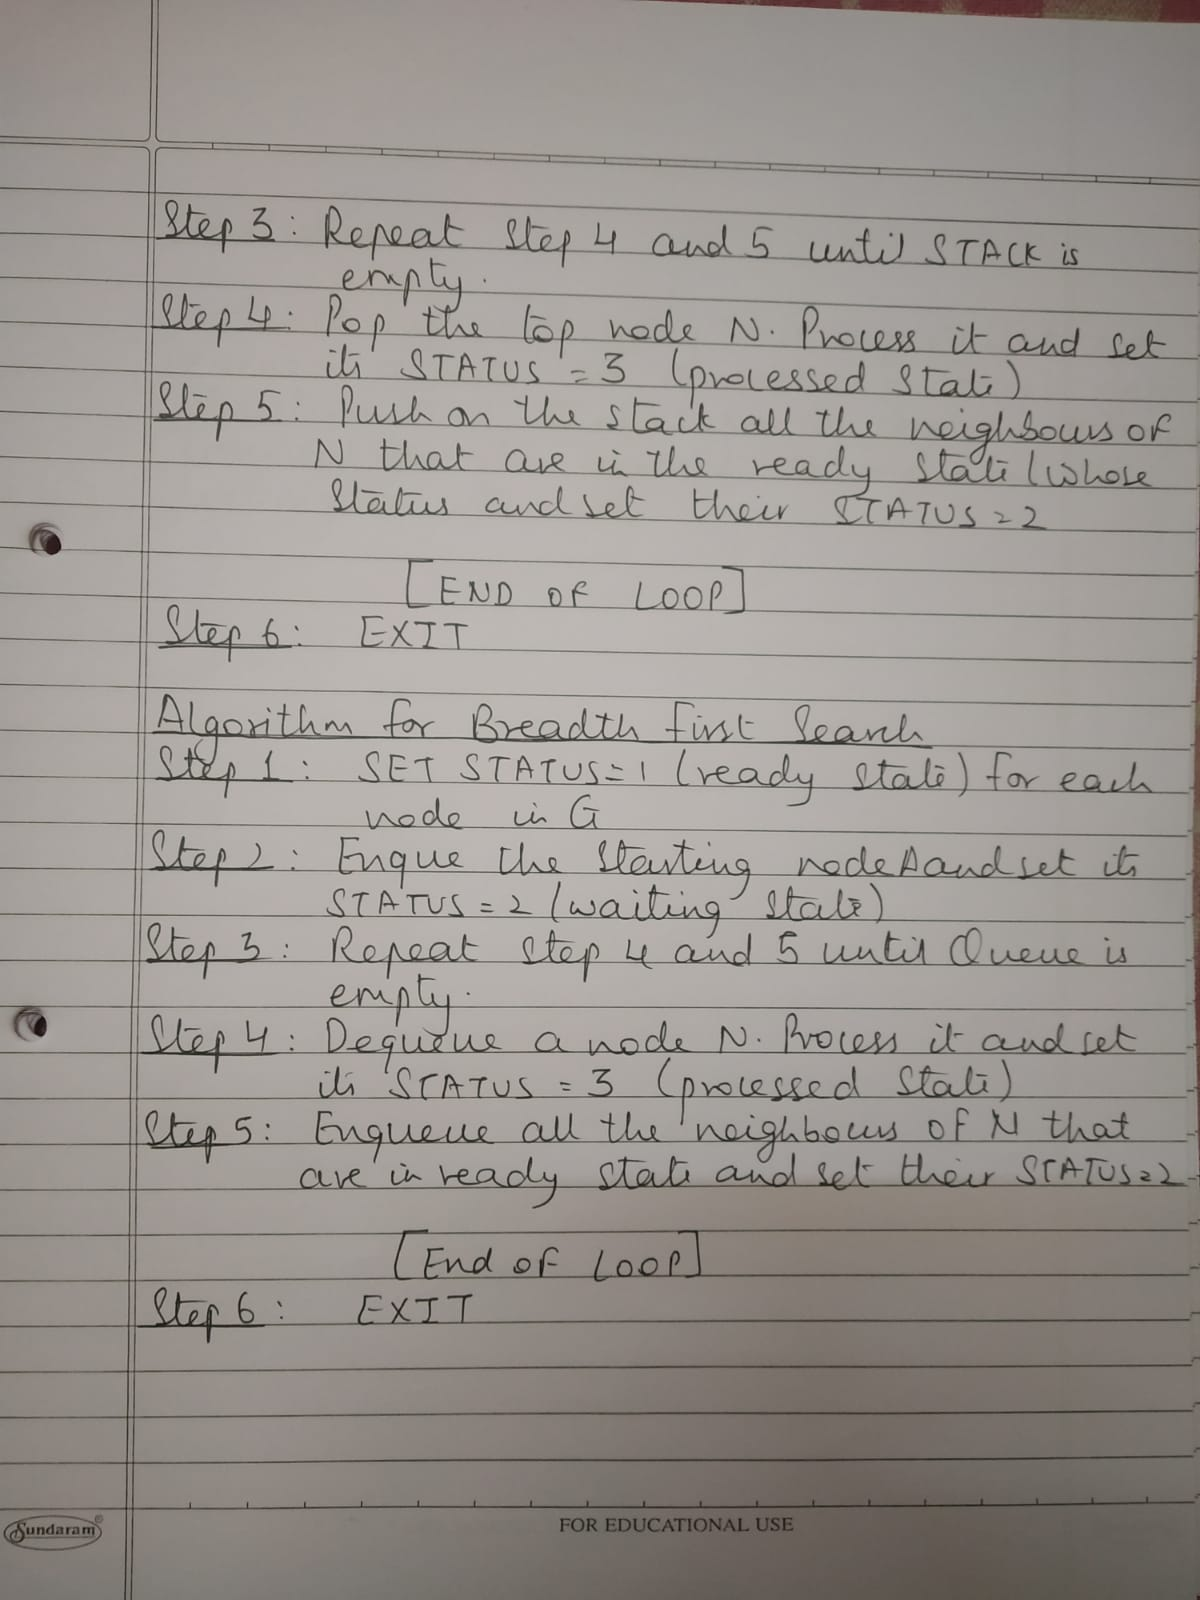 Step 3: Repeat Step 4 and 5 until STACK is
empty.
Step 4: Pop the top node N. Process it and set
its STATUS = 3 (processed State)
Step 5: Push on the stack all the neighbours of
N that are in the ready State (whose
Status and set their STATUS = 2
[END OF LOOP]
Step 6: EXIT
Algorithm for Breadth First Search
Step 1: SET STATUS = 1 (ready state) for each
node in G
Step 2: Enque the Starting node A and set its
STATUS = 2 (waiting State)
Step 3: Repeat Step 4 and 5 until Queue is
empty.
Step 4: Dequeue a node N. Process it and set
its STATUS = 3 (processed State)
Step 5: Enqueue all the neighbours of N that
are in ready state and set their STATUS = 2
[End of LOOP]
Step 6: EXIT
Sundaram®
FOR EDUCATIONAL USE